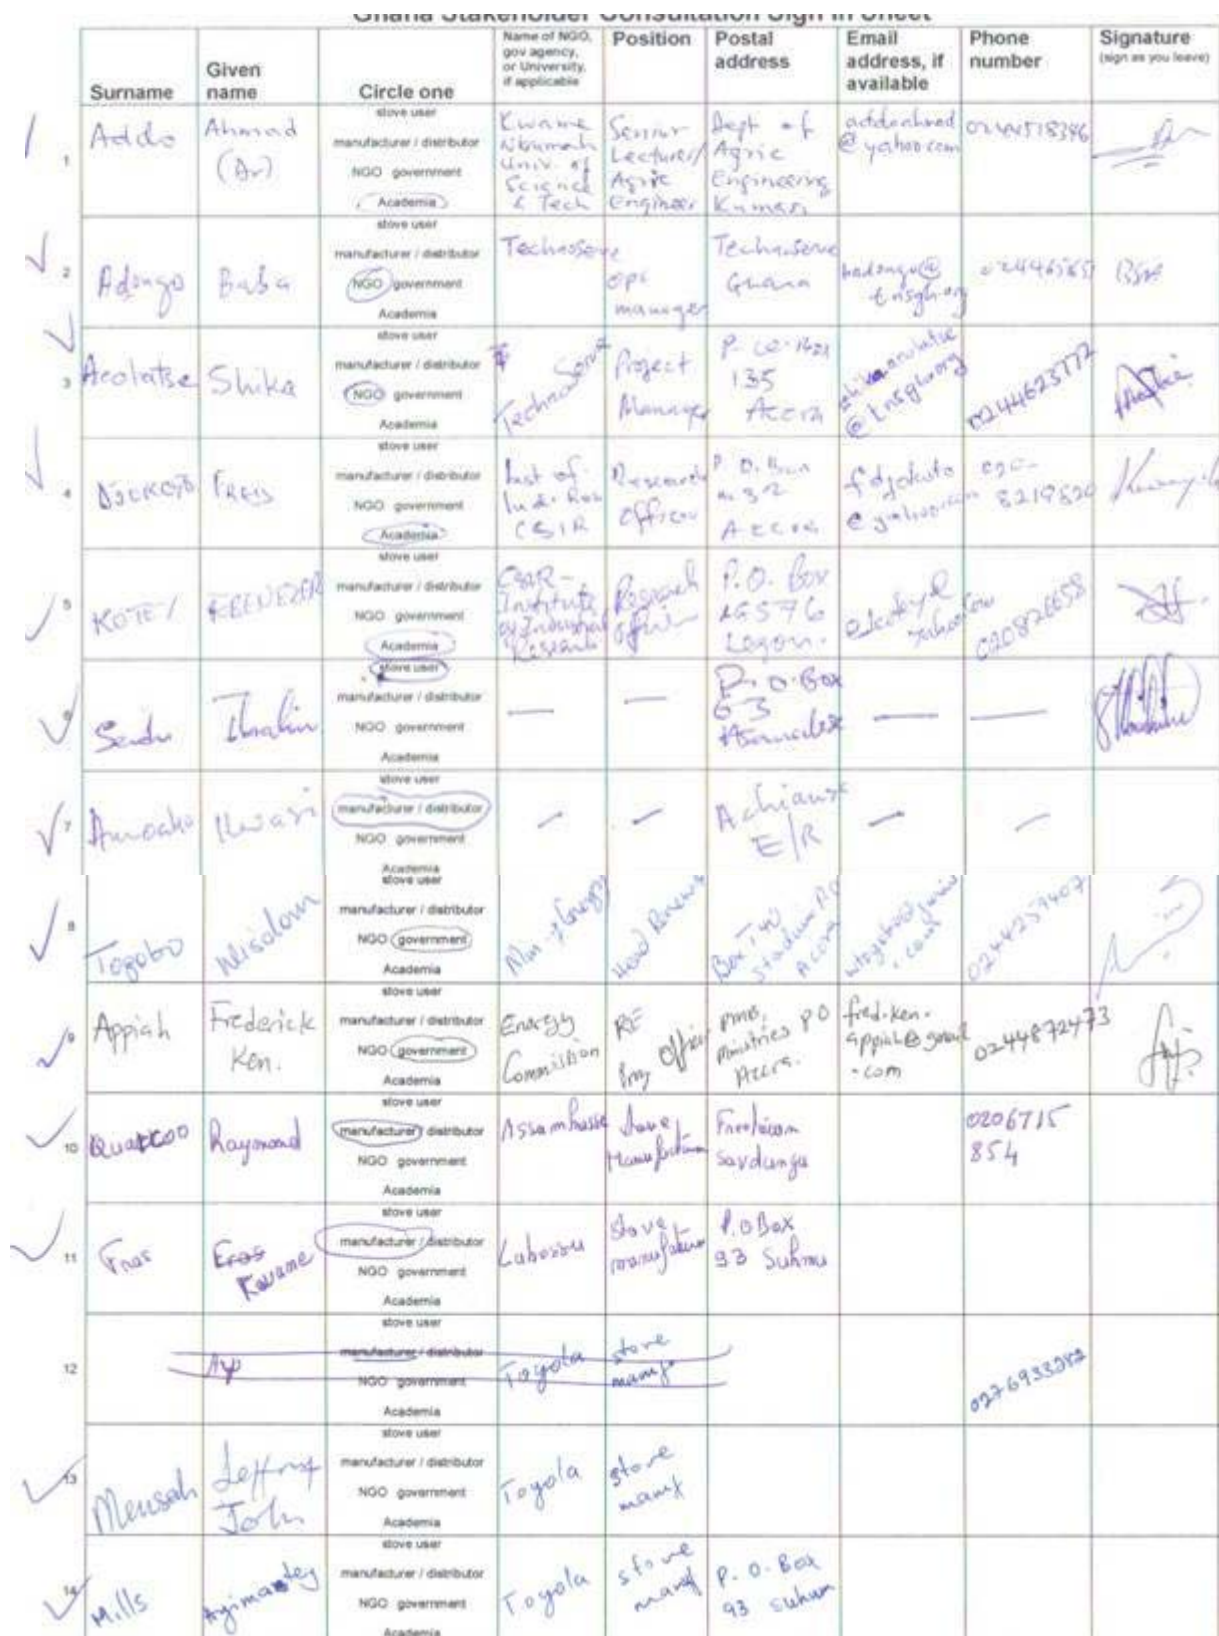 Ghana Stakeholder Consultation Sign In Sheet
Surname Given name Circle one Name of NGO, gov agency, or University, if applicable Position Postal address Email address, if available Phone number Signature (sign as you leave)
1 Addo Ahmad (Dr) stove user
manufacturer / distributor
NGO government
Academia
Kwame Nkrumah Univ. of Science & Tech
Senior Lecturer/ Agric Engineer
Dept of Agric Engineering Kumasi
addoahmed @yahoo.com
0244518396
2 Adongo Baba stove user
manufacturer / distributor
NGO government
Academia
Technoserve
ops manager
Technoserve Ghana
badongo@ tnsgh.org
3 Acolatse Shika stove user
manufacturer / distributor
NGO government
Academia
TechnoServe
Project Manager
135 Accra
@tnsgh.org
0244623772
4 stove user
manufacturer / distributor
NGO government
Academia
Inst of CSIR
Research Officer
Accra
fdjokoto
8219820
5 KOTEY EBENEZER stove user
manufacturer / distributor
NGO government
Academia
CSIR- Institute of Industrial Research
Research Officer
P.O. Box LG576 Legon.
6 Seidu Ibrahim stove user
manufacturer / distributor
NGO government
Academia
— —
P.O. Box 63
— —
7 Amoako Kwasi stove user
manufacturer / distributor
NGO government
Academia
— —
Achiause E/R
— —
8 Togobo Wisdom stove user
manufacturer / distributor
NGO government
Academia
Min. of Energy
Head
Box T40 Stadium PO Accra
.com
0244259407
9 Appiah Frederick Ken. stove user
manufacturer / distributor
NGO government
Academia
Energy Commission
RE Officer
PMB, Ministries PO Accra.
fred.ken. appiah@gmail .com
0244872473
10 Quarcoo Raymond stove user
manufacturer / distributor
NGO government
Academia
stove
0206715 854
11 Kwame stove user
manufacturer / distributor
NGO government
Academia
stove
P.O Box 93 Suhum
12 stove user
manufacturer / distributor
NGO government
Academia
Toyola
stove manf
0276933282
13 Mensah Jeffrey John stove user
manufacturer / distributor
NGO government
Academia
Toyola
stove manf
14 Mills stove user
manufacturer / distributor
NGO government
Academia
Toyola
stove manf
P.O. Box 93 Suhum